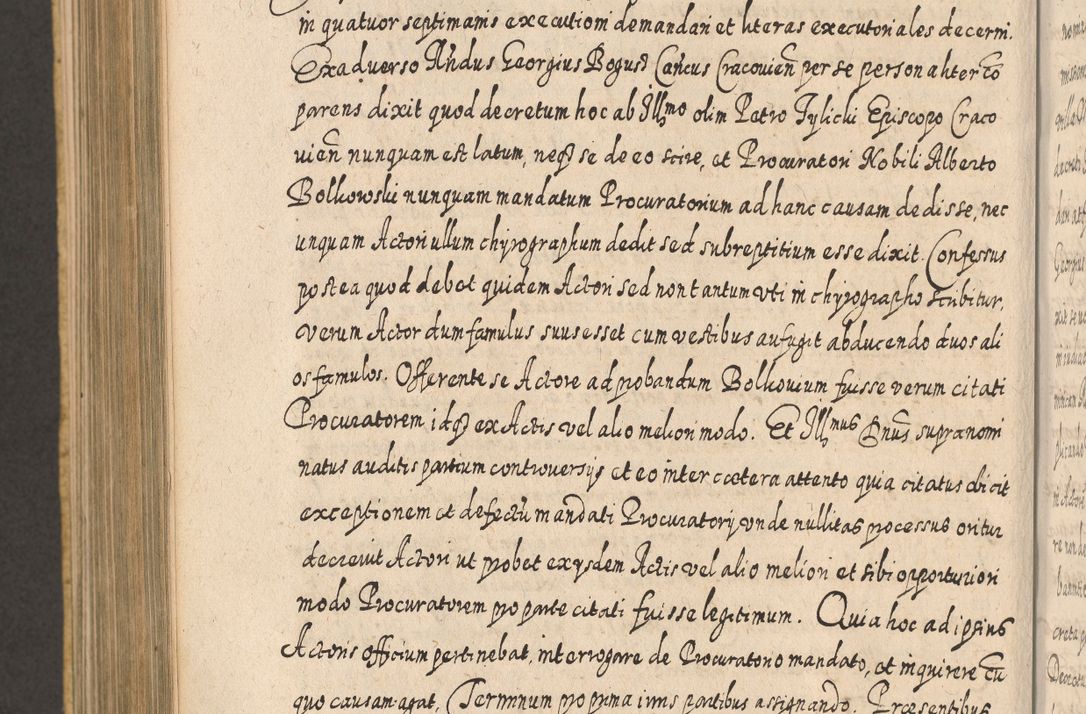 in quatuor septimanis executioni demandari et literas executoriales decerni.
Ex adverso Rndus Georgius Boguss Cancus Cracovien per se personaliter co
parens dixit quod decretum hoc ab Illmo olim Petro Tylicki Episcopo Craco
vien nunquam est latum, neqz se de eo scire, et Procuratori Nobili Alberto
Bolkowski nunquam mandatum Procuratorium ad hanc causam dedisse, nec
unquam Actori ullum chyrographum dedit sed subreptitium esse dixit. Confessus
postea quod debet quidem Actori sed non tantum uti in chyrographo scribitur,
verum Actor dum famulus suus esset cum vestibus aufugit abducendo duos ali
os famulos. Offerente se Actore ad probandum Bolkovium fuisse verum citati
Procuratorem idqz ex Actis vel alio meliori modo. Et Illmus Dnus supranomi
natus auditis partium controversijs et eo inter cætera attento quia citatus dicit
exceptionem et defectu mandati Procuratorij, unde nullitas processus oritur
decrevit Actori ut probet ex ijsdem Actis vel alio meliori et sibi opportuniori
modo Procuratorem pro parte citati fuisse legitimum. Quia hoc ad ipsius
Actoris officium pertinebat, interrogare de Procuratorio mandato, et inquirere cu
quo causam agat, Terminum pro prima iuris partibus assignando. Præsentibus